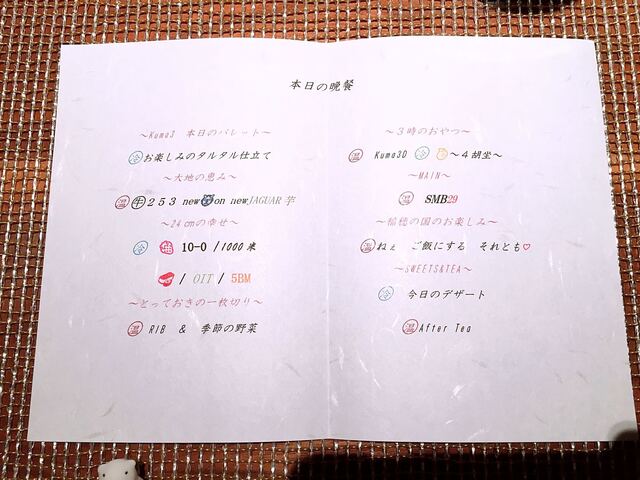 本日の晩餐
～Kuma3 本日のパレット～
冷 お楽しみのタルタル仕立て
～大地の恵み～
温 牛 253 new on new JAGUAR 芋
～24cmの幸せ～
冷 10-0 /1000 米
/ OIT / 5BM
～とっておきの一枚切り～
温 RIB & 季節の野菜
～3時のおやつ～
温 Kuma3D 冷 ～4胡坐～
～MAIN～
温 SMB29
～稲穂の国のお楽しみ～
温 ねぇ ご飯にする それとも♡
～SWEETS&TEA～
冷 今日のデザート
温 After Tea